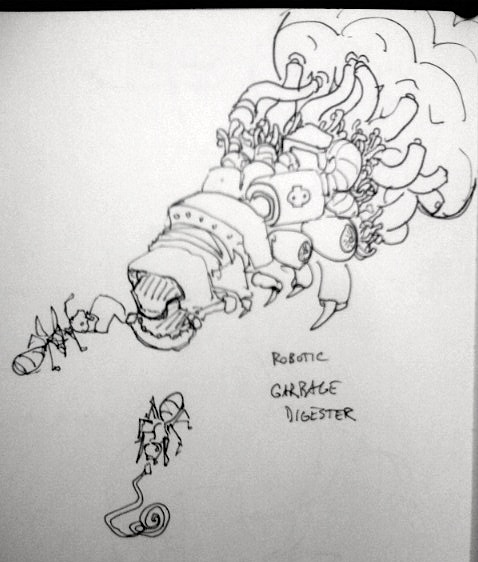 ROBOTIC
GARBAGE
DIGESTER